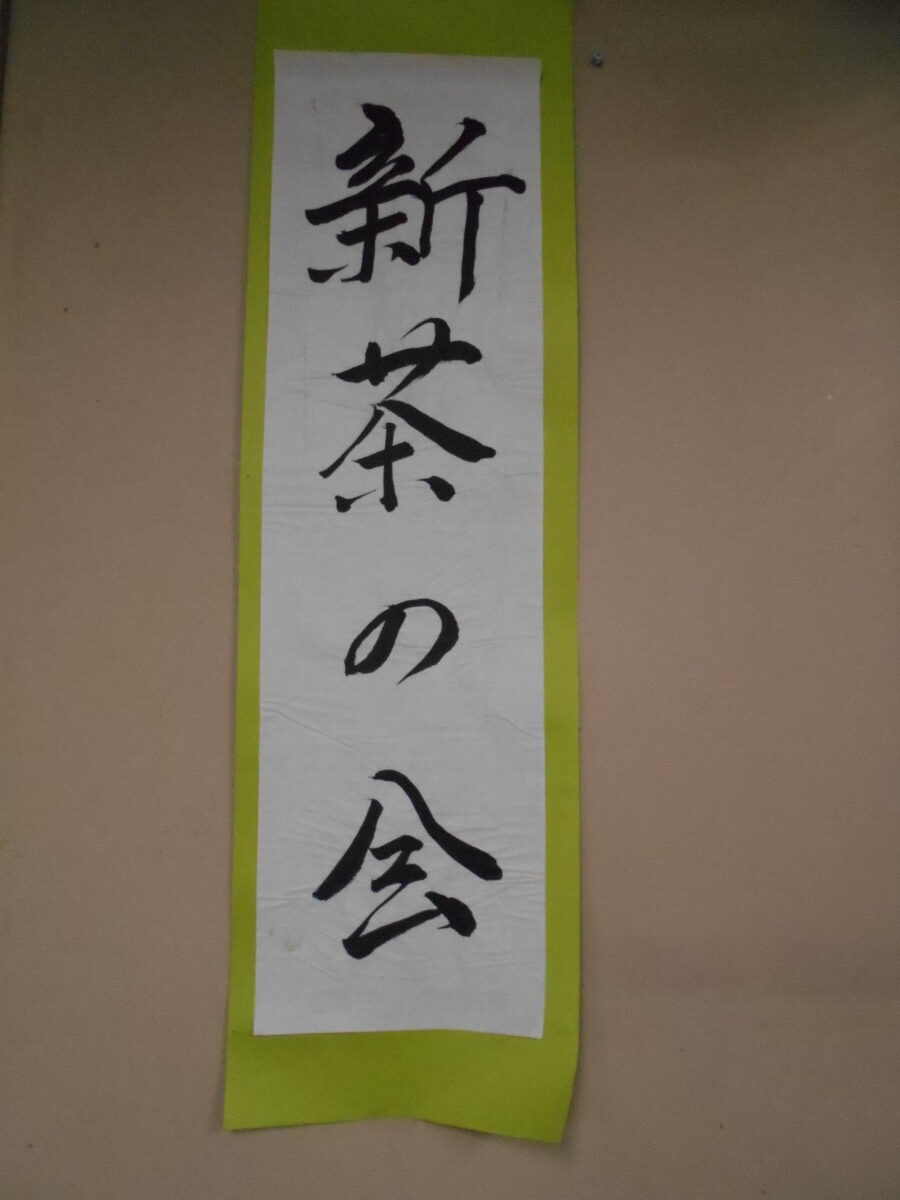 新茶の会